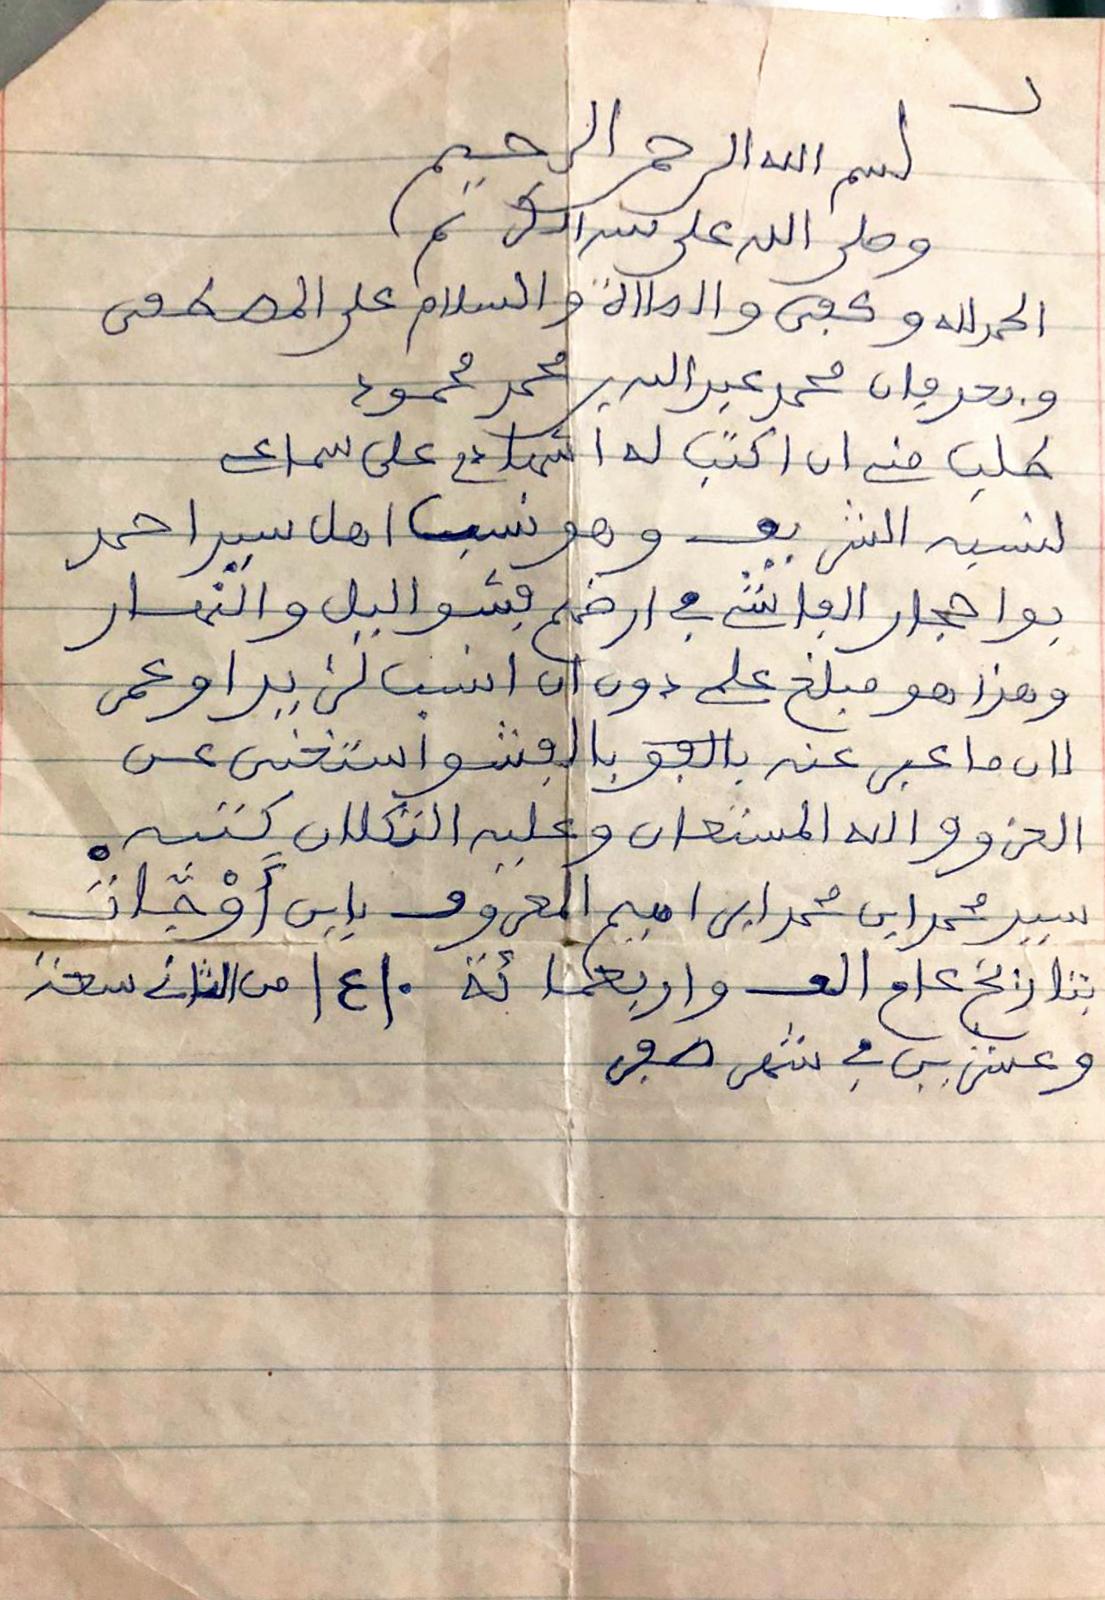 بسم الله الرحمن الرحيم
وصلى الله على نبيه الكريم
الحمد لله وكفى والصلاة والسلام على المصطفى
وبعد فإن محمد عبد الله بن محمد محمود
طلب مني ان اكتب له اشهادي على سماعي
لنسبه الشريف وهو نسب اهل سيد احمد
بو احجار الفاشي في ارضهم فشو اليل والنهار
وهذا هو مبلغ علمي دون ان انسب لزيد او عمر
لان ما عبر عنه بالفو بالفشو استغنى عن
العزو والله المستعان وعليه التكلان كتبه
سيد محمد ابن محمد ابراهيم المعروف بابن
بتاريخ عام الف واربعمائة ١٤١٠ من الثاني
وعشرين في شهر صفر